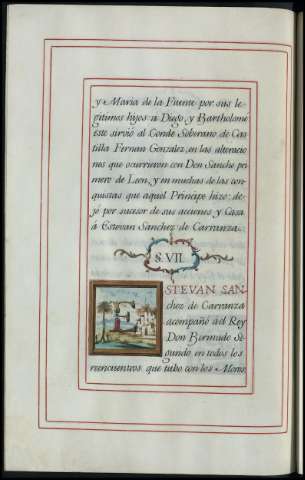 y Maria de la Fuente por sus le-
gitimos hijos a Diego, y Bartholomé
éste sirvió al Conde Soberano de Cas
tilla Fernan Gonzalez, en las alteracio
nes que ocurrieron con Don Sancho pri
mero de Leon, y en muchas de las con-
quistas que aquel Principe hizo: de-
jó por sucesor de sus acciones y Casa
á Estevan Sanchez de Carranza.
S. VII.
STEVAN SAN
chez de Carranza
acompañó al Rey
Don Bermudo Se
gundo en todos los
rencuentros que tubo con los Moros